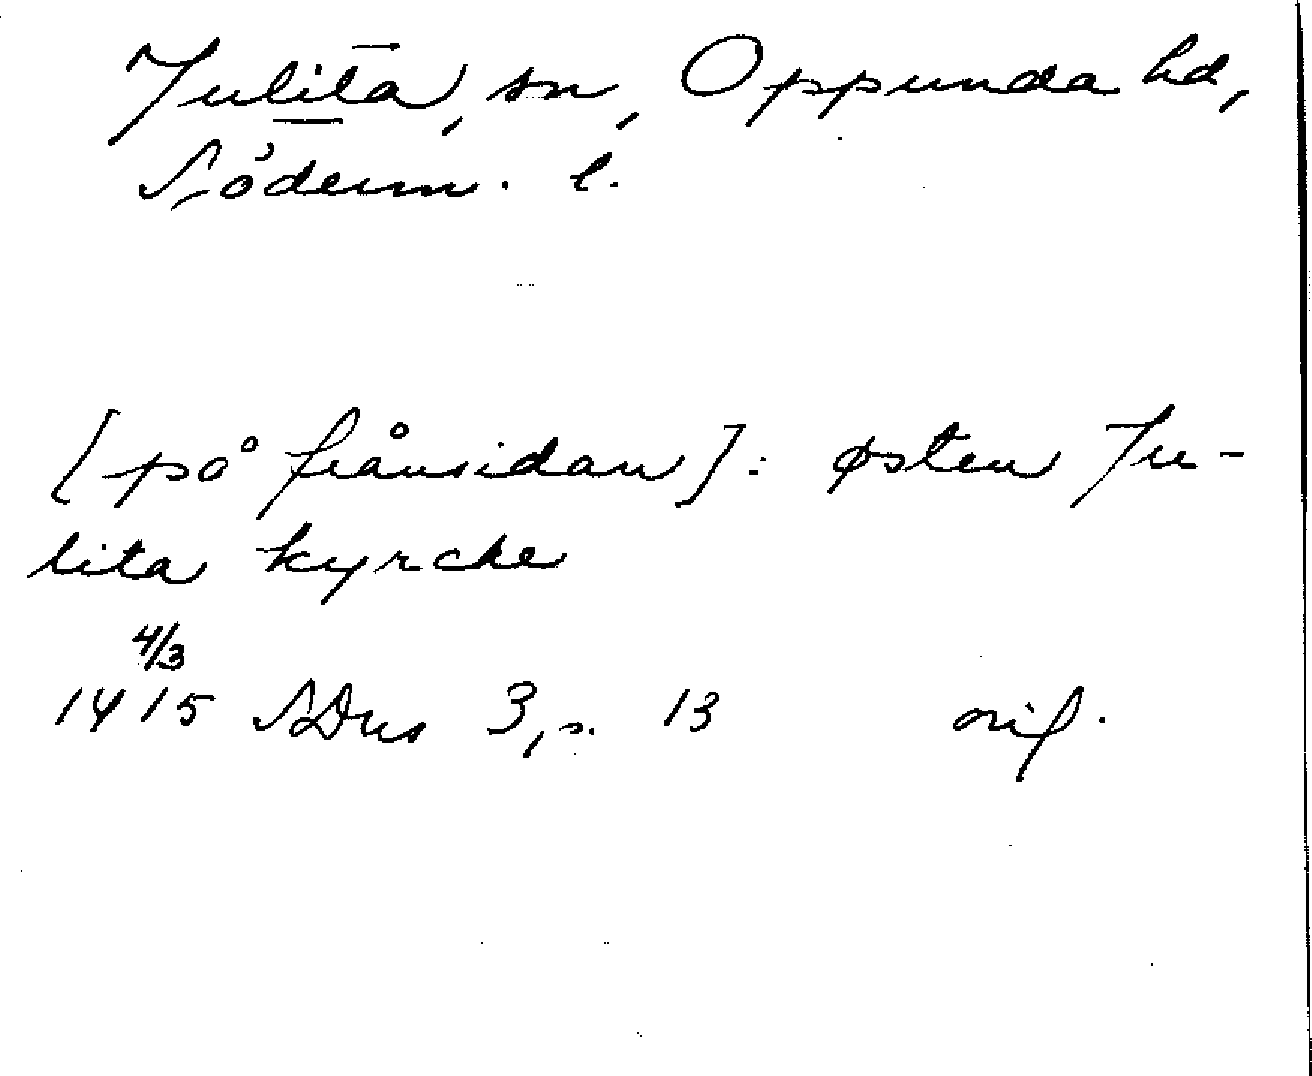 Julita, sn, Oppunda hd,
Söderm. l.
[på frånsidan]: østen Ju-
lita kyrcke
4/3
1415 SDns 3, s. 13 orig.